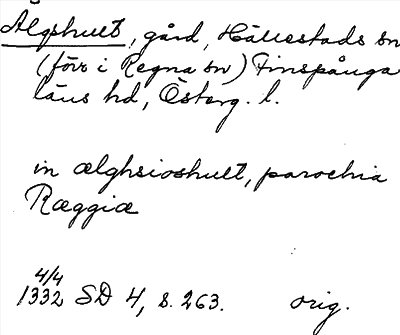 Älgshult, gård, Hällestads sn
(förr i Regna sn) Finspånga
läns hd, Österg. l.
in ælghsioshult, parochia
Ræggiæ
4/4
1332 SD 4, s. 263. orig.